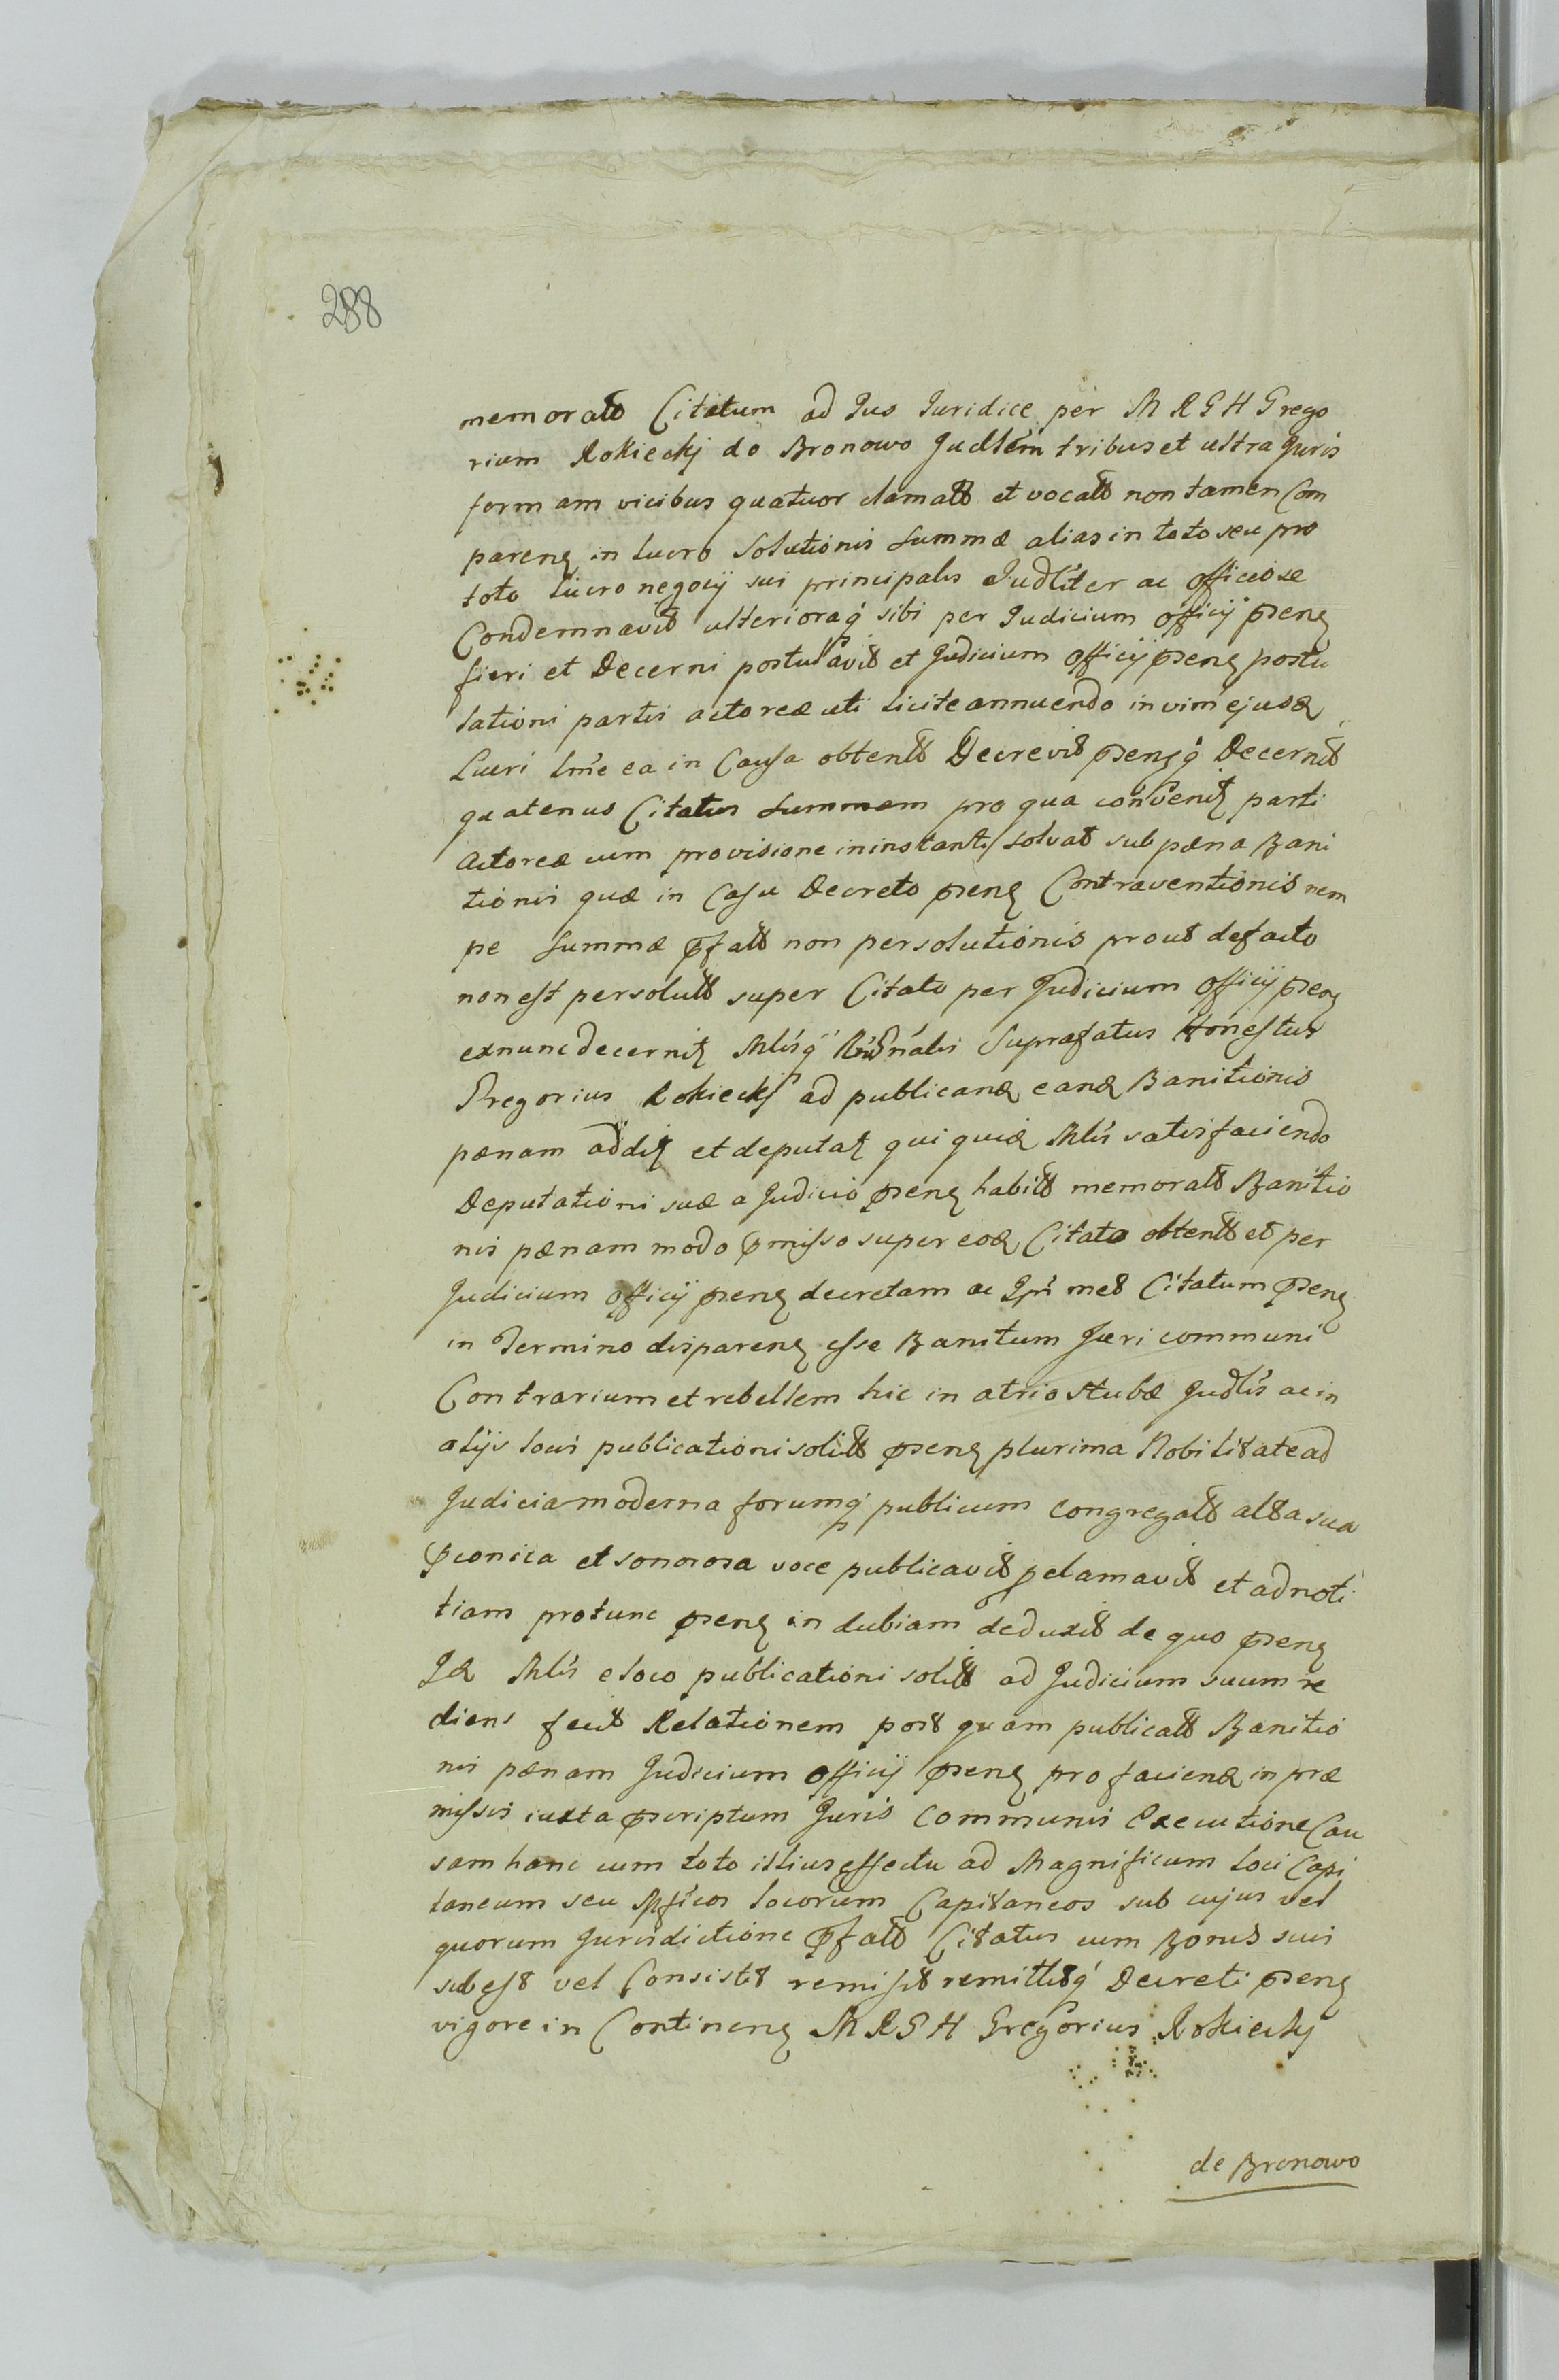 288
memoratt Citatum ad Jus Juridice per M R G H Grego
rium Rokiecky do Bronowo Judlem tribus et ultra Juris
formam vicibus quatuor clamatt et vocatt non tamen Com
parenz in lucro Solutionis Summæ alias in toto seu pro
toto lucro negocij sui principalis Judliter ac officiose
Condemnavit ulterioraq sibi per Judicium officij psenz
fieri et Decerni postulavit et Judicium officij psenz postu
lationi partis actoreæ uti licite annuendo in vim ejusd
Lucri lmie ea in Causa obtentt Decrevit psensq Decernit
quatenus Citatus Summam pro qua convenit parti
actoreæ cum provisione ininstanti solvat sub pæna Bani
tionis quæ in Casu Decreto psenz Contraventionis nem
pe Summæ pfatt non persolutionis prout defacto
non est persolutt super Citato per Judicium officij psenz
exnunc decernitz Mlisq Suprafatus Honestus
Gregorius Rokiecky ad publicand eand Banitionis
pænam addit et deputat qui quid Mlis satisfaciendo
Deputationi suæ a Judicio psenz habitt memoratt Banitio
nis pænam modo pmisso super eod Citato obtentt et per
Judicium officij psenz decretam ac Ipm met Citatum psenz
in Termino disparenz esse Banitum Juri communi
Contrarium et rebellem hic in atrio stubæ Judlis ac in
alijs locis publicationi solitt psenz plurima Nobilitate ad
Judicia moderna forumq publicum congregatt alta sua
pconica et sonorosa voce publicavit pclamavit et ad noti
tiam protunc psenz in dubiam deduxit de quo psenz
Id Mlis e loco publicationi solitt ad Judicium suum re
diens fecit Relationem post quam publicatt Banitio
nis pænam Judicium officij psenz pro faciend in præ
missis iuxta pscriptum Juris communis Executione Cau
sam hanc cum toto illius effectu ad Magnificum loci Capi
taneum seu Mficos locorum Capitaneos sub cujus vel
quorum Jurisdictione pfatt Citatus cum Bonis suis
subest vel Consistit remisit remittitq Decreti psenz
vigore in Continenz M R G H Gregorius Rokiecky
de Bronowo